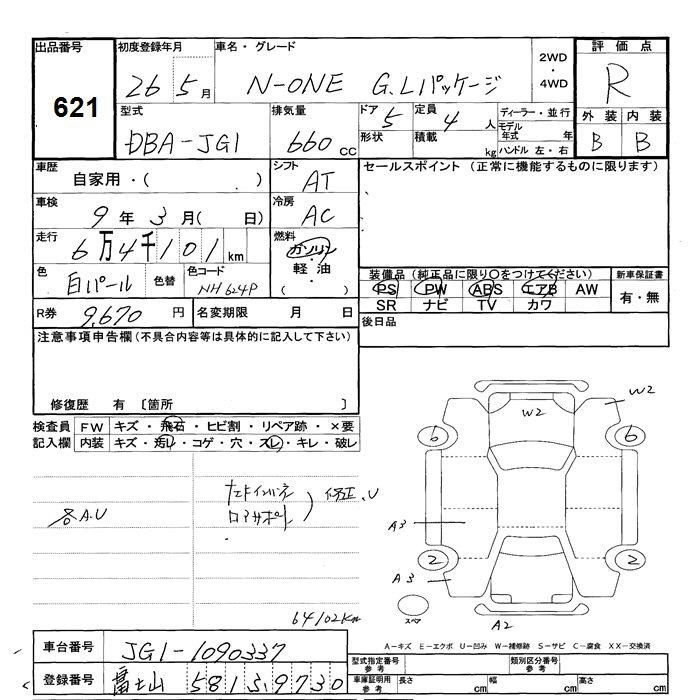 出品番号 初度登録年月 車名・グレード 2WD・4WD 評価点
621 26 5月 N-ONE G.Lパッケージ R
型式 排気量 ドア 5 定員 4人 ディーラー・並行 外装 内装
DBA-JG1 660 cc 形状 積載 kg モデル年式 年 B B
ハンドル 左・右
車歴 シフト セールスポイント (正常に機能するものに限ります)
自家用・( ) AT
車検 冷房
9年 3月( 日) AC
走行 燃料
6万4千101km ガソリン・軽油
色 色コード 装備品 (純正品に限り○をつけてください) 新車保証書
白パール 色替 NH624P ( ) PS PW ABS エアB AW 有・無
SR ナビ TV カワ
R券 9,670円 名変期限 月 日 後日品
注意事項申告欄(不具合内容等は具体的に記入して下さい)
修復歴 有 〔箇所 〕
検査員 FW キズ・飛石・ヒビ割・リペア跡・×要
記入欄 内装 キズ・汚れ・コゲ・穴・スレ・キレ・破レ
W2 W2
6 6
各A.U 修正、U
A3
2 2
A3
スペア A2
64102Km
A-キズ E-エクボ U-凹み W-補修跡 S-サビ C-腐食 XX-交換済
車台番号 JG1-1090337
型式指定番号 参考 類別区分番号 参考
登録番号 富士山 581 3 9730
車庫証明用 参考 長さ cm 幅 cm 高さ cm